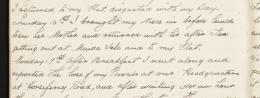 I returned to my Flat, disgusted with my Day.
Sunday 18th. I brought my there in before lunch
saw her Mother and returned with her after Tea
getting out at Maida Vale and to my Flat.
Monday 19th After Breakfast I went along and
reported the loss of my at our Headquarters
at Horseferry Road, and after waiting for an hour